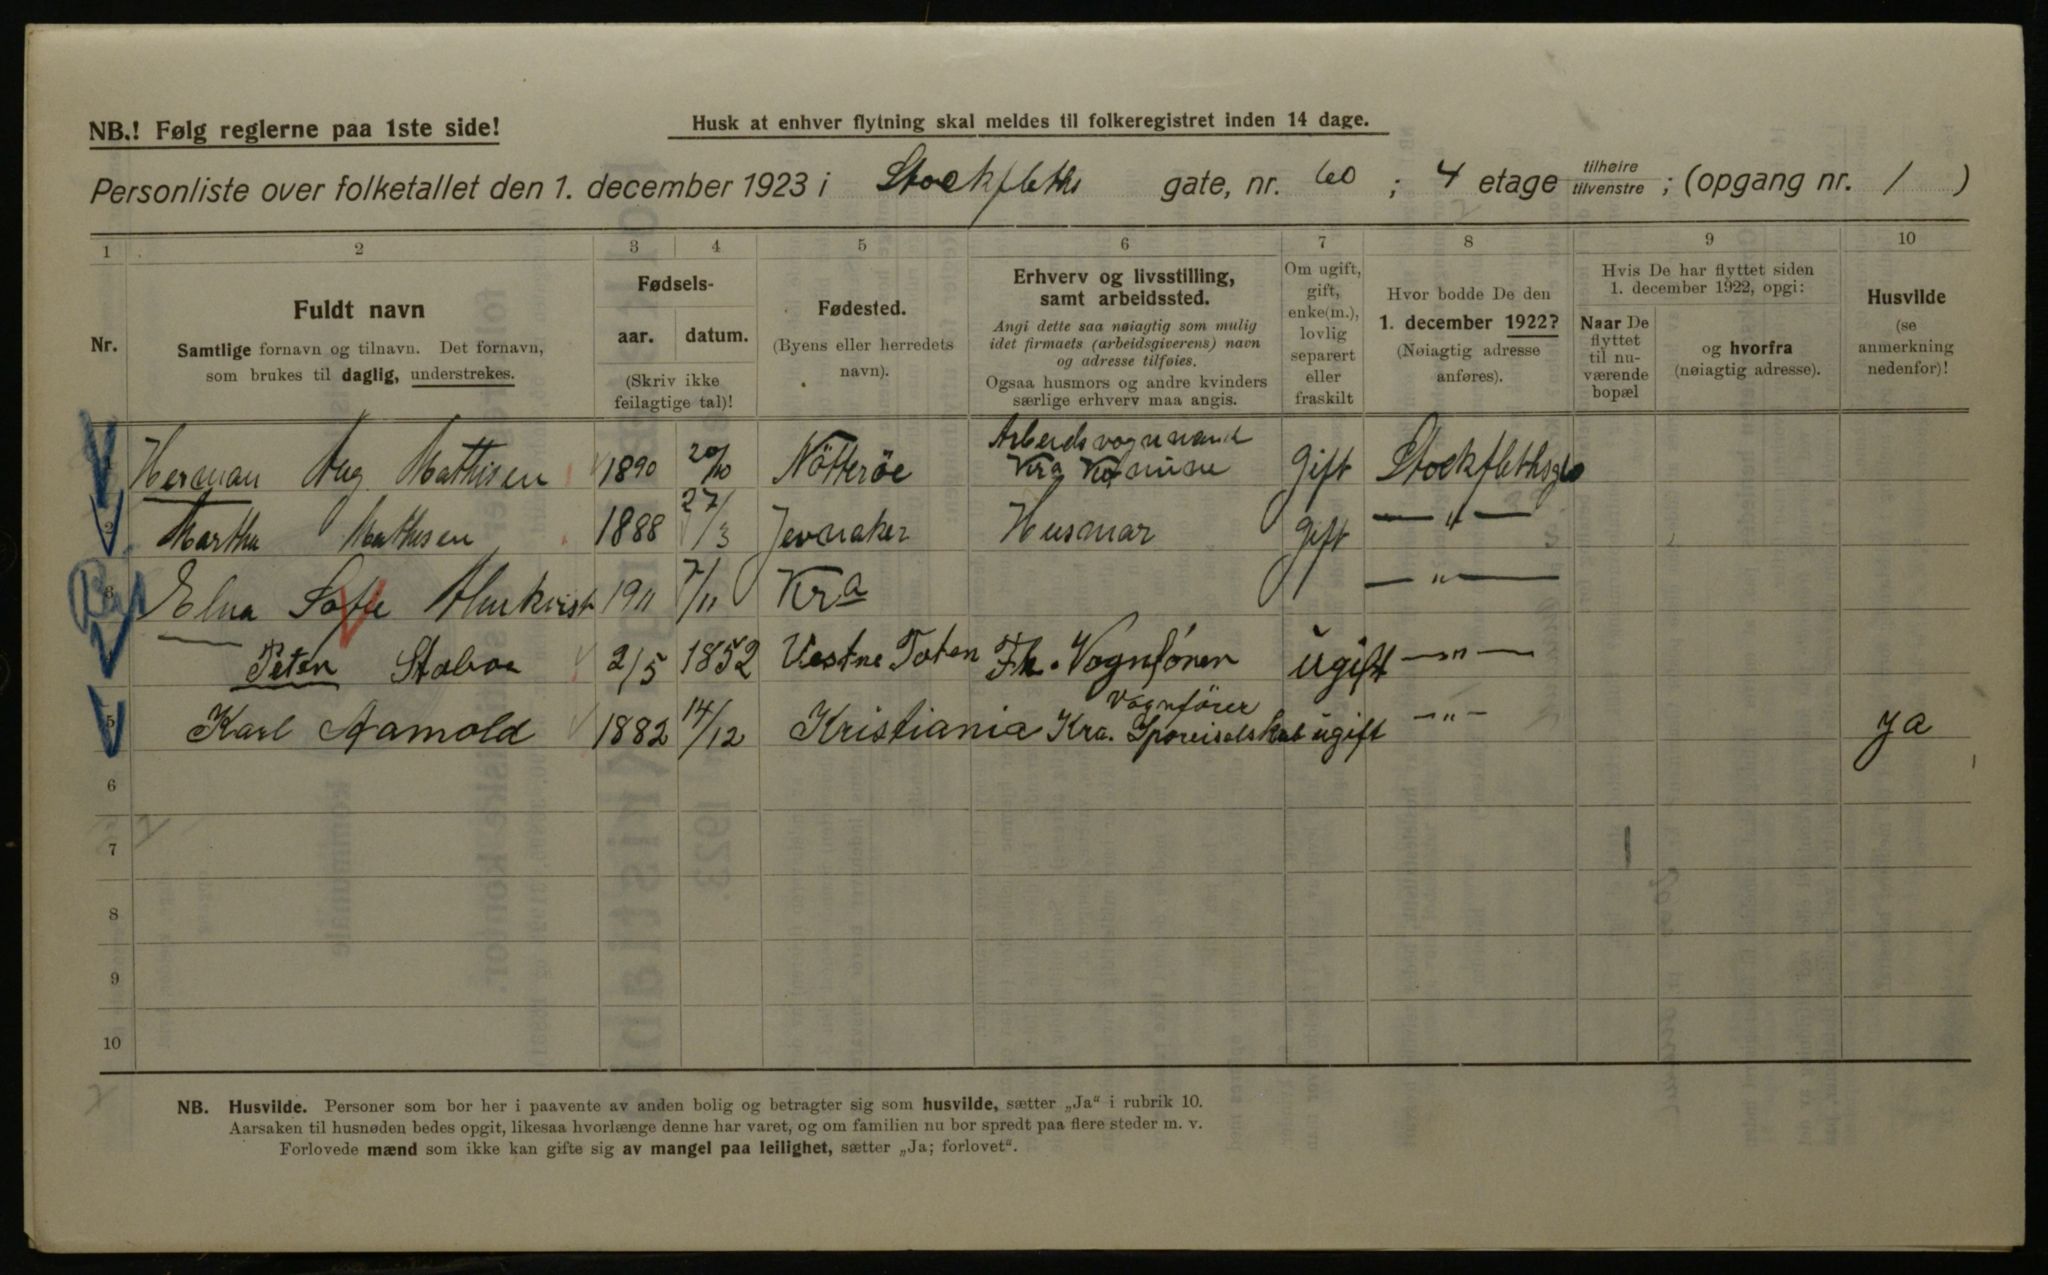 NB.! Følg reglerne paa 1ste side!
Husk at enhver flytning skal meldes til folkeregistret inden 14 dage.
Personliste over folketallet den 1. december 1923 i Stockfleths gate, nr. 60 ; 4 etage tilhøire tilvenstre ; (opgang nr. / )
1 2 3 4 5 6 7 8 9 10
Nr.
Fuldt navn
Samtlige fornavn og tilnavn. Det fornavn,
som brukes til daglig, understrekes.
Fødsels-
aar. datum.
(Skriv ikke
feilagtige tal)!
Fødested.
(Byens eller herredets
navn).
Erhverv og livsstilling,
samt arbeidssted.
Angi dette saa nøiagtig som mulig
idet firmaets (arbeidsgiverens) navn
og adresse tilføies.
Ogsaa husmors og andre kvinders
særlige erhverv maa angis.
Om ugift,
gift,
enke(m.),
lovlig
separert
eller
fraskilt
Hvor bodde De den
1. december 1922?
(Nøiagtig adresse
anføres).
Hvis De har flyttet siden
1. december 1922, opgi:
Naar De
flyttet
til nu-
værende
bopæl
og hvorfra
(nøiagtig adresse).
Husvilde
(se
anmerkning
nedenfor)!
Herman Aug Mathisen 1890 20/10 Nötteröe Arbeidsvognmand Kra Komune Gift
2 Martha Mathisen 1888 27/3 Jevnaker Husmor Gift — " —
3 Elna Sofie Almkvist 1911 7/11 Kra — " —
Peter Staboe 2/5 1852 Vestne Toten Fh. Vognfören ugift — " —
5 Karl Aamold 1882 14/12 Kristiania Vognförer Kra. Sporveiselskab ugift — " — ja
6
7
8
9
10
NB. Husvilde. Personer som bor her i paavente av anden bolig og betragter sig som husvilde, sætter „Ja“ i rubrik 10.
Aarsaken til husnøden bedes opgit, likesaa hvorlænge denne har varet, og om familien nu bor spredt paa flere steder m. v.
Forlovede mænd som ikke kan gifte sig av mangel paa leilighet, sætter „Ja; forlovet“.